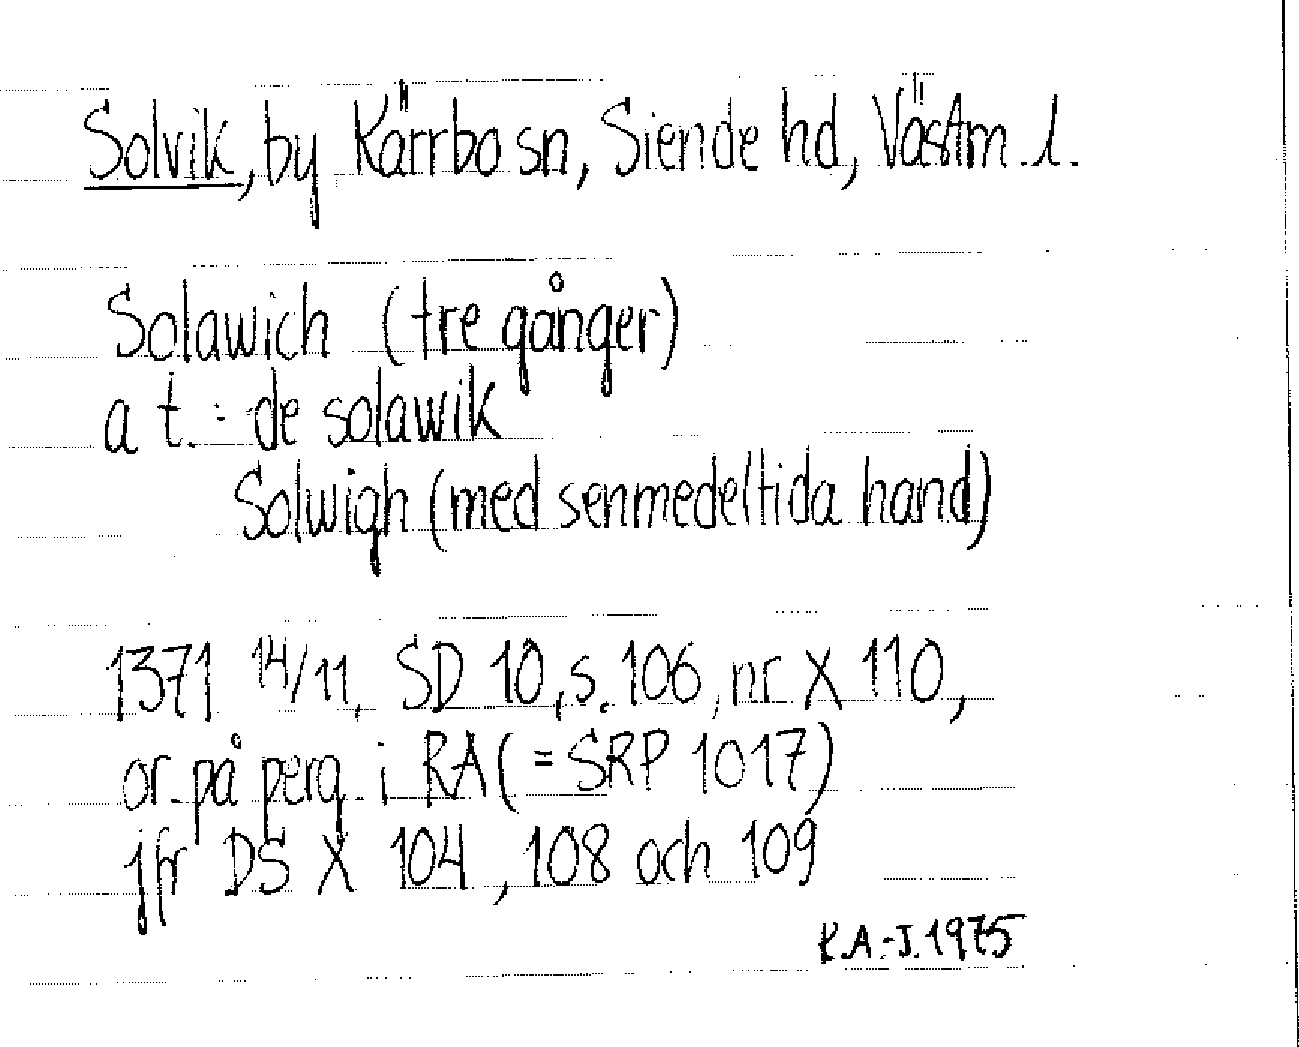 Solvik, by Kärrbo sn, Siende hd, Västm. l.
Solawich (tre gånger)
a t. : de solawik
Solwigh (med senmedeltida hand)
1371 14/11, SD 10, s. 106, nr X 110,
or. på perg. i RA (= SRP 1017)
jfr DS X 104, 108 och 109
R.A.-J. 1975